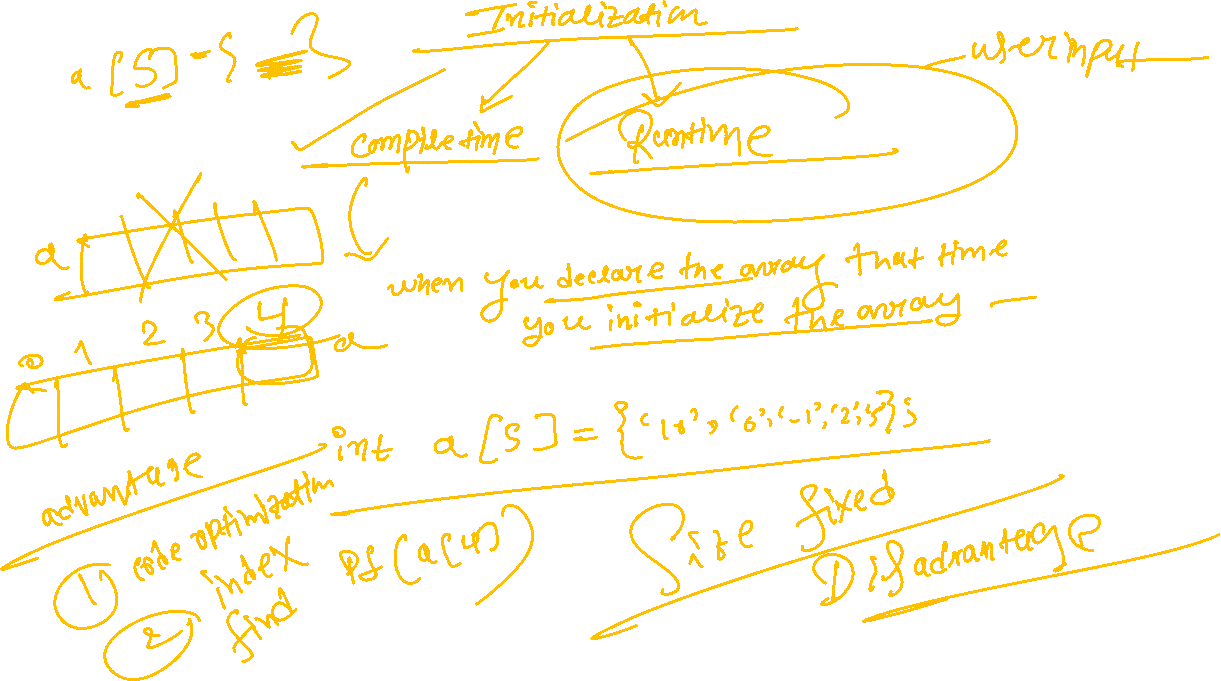 Initialization
a [5] = { }
user input
compile time
Runtime
a
when you declare the array that time
you initialize the array
0 1 2 3 4
a
int a [5] = {
advantage
1) code optimization
2) index
find
Pf (a[4])
Size fixed
Disadvantage